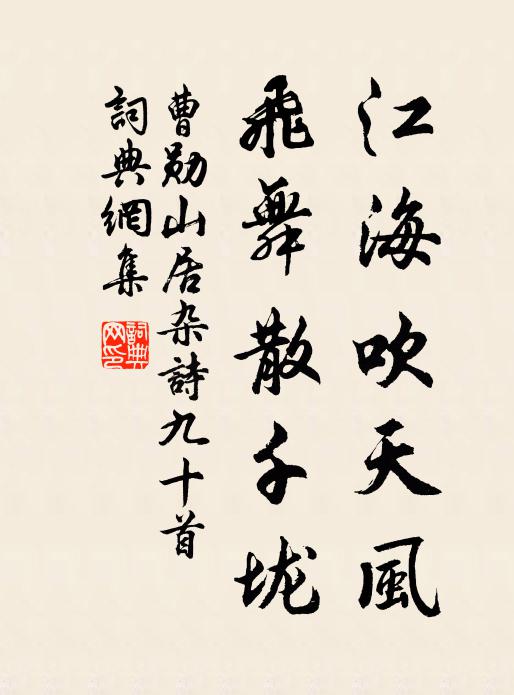 江海吹天風
飛舞散千垅
曹勛山居杂詩九十首
詞典網集
詞典
网印